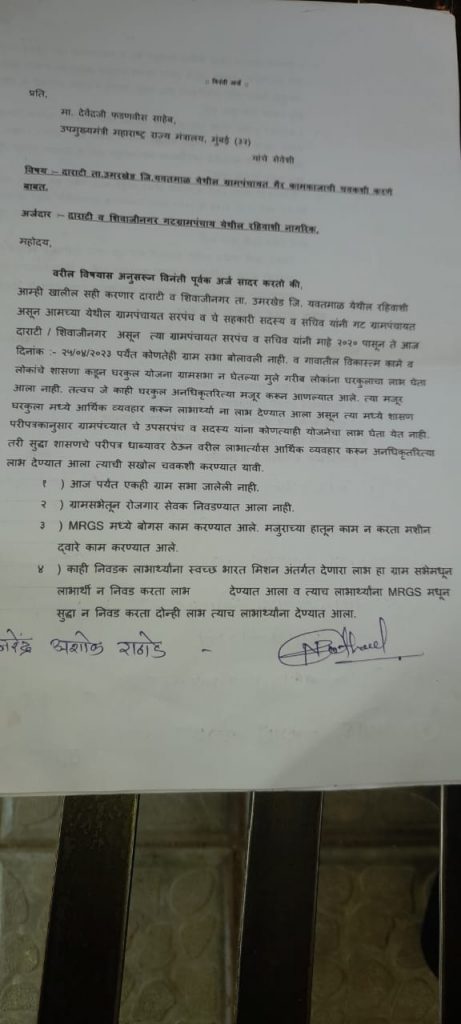 :: विनंती अर्ज ::
प्रति,
मा. देवेंद्रजी फडणवीस साहेब,
उपमुख्यमंत्री महाराष्ट्र राज्य मंत्रालय, मुंबई (३२)
यांचे सेवेशी
विषय :- दाराटी ता.उमरखेड जि.यवतमाळ येथील ग्रामपंचायत गैर कामकाजाची चवकशी करणे
बाबत.
अर्जदार :- दाराटी व शिवाजीनगर गटग्रामपंचाय येथील रहिवाशी नागरिक.
महोदय,
वरील विषयास अनुसरून विनंती पूर्वक अर्ज सादर करतो की,
आम्ही खालील सही करणार दाराटी व शिवाजीनगर ता. उमरखेड जि. यवतमाळ येथील रहिवाशी
असून आमच्या येथील ग्रामपंचायत सरपंच व चे सहकारी सदस्य व सचिव यांनी गट ग्रामपंचायत
दाराटी / शिवाजीनगर असून त्या ग्रामपंचायत सरपंच व सचिव यांनी माहे २०२० पासून ते आज
दिनांक :- २५/०४/२०२३ पर्यंत कोणतेही ग्राम सभा बोलावली नाही. व गावातील विकास्त्म कामे व
लोकांचे शासणा कडून घरकुल योजना ग्रामसभा न घेतल्या मुले गरीब लोकांना घरकुलाचा लाभ घेता
आला नाही. तत्वच जे काही घरकुल अनधिकृतरित्या मजूर करून आणल्यात आले. त्या मजूर
घरकुला मध्ये आर्थिक व्यवहार करून लाभार्थ्यां ना लाभ देण्यात आला असून त्या मध्ये शासण
परीपत्रकानुसार ग्रामपंच्यात चे उपसरपंच व सदस्य यांना कोणत्याही योजनेचा लाभ घेता येत नाही.
तरी सुद्धा शासणचे परीपत्र धाब्यावर ठेऊन वरील लाभार्त्यास आर्थिक व्यवहार करून अनधिकृतरित्या
लाभ देण्यात आला त्याची सखोल चवकशी करण्यात यावी.
१ ) आज पर्यत एकही ग्राम सभा जालेली नाही.
२ ) ग्रामसभेतून रोजगार सेवक निवडण्यात आला नाही.
३ ) MRGS मध्ये बोगस काम करण्यात आले. मजुराच्या हातून काम न करता मशीन
द्वारे काम करण्यात आले.
४ ) काही निवडक लाभार्थ्यांना स्वच्छ भारत मिशन अंतर्गत देणारा लाभ हा ग्राम सभेमधून
लाभार्थी न निवड करता लाभ देण्यात आला व त्याच लाभार्थ्यांना MRGS मधून
सुद्धा न निवड करता दोन्ही लाभ त्याच लाभार्थ्यांना देण्यात आला.
नरेंद्र अशोक राठोडे -